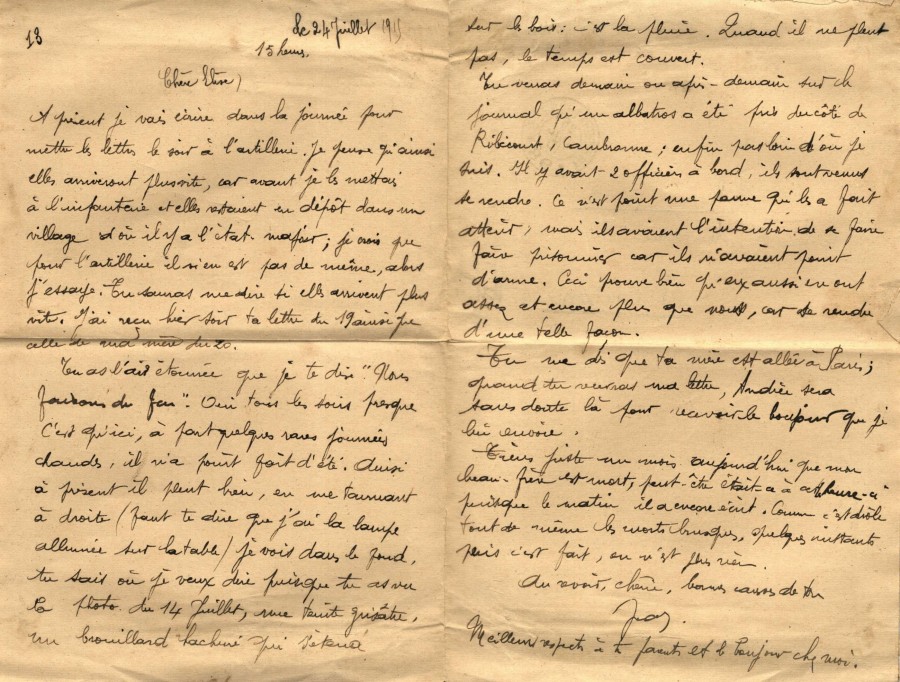 13
Le 24 Juillet 1915
15 heures
Chère
A présent je vais écrire dans la journée pour
mettre les lettres le soir à l'artillerie. Je pense qu'ainsi
elles arriveront plus vite, car avant je les mettais
à l'infanterie et elles restaient en dépôt dans un
village d'où il y a l'état-major; je crois que
pour l'artillerie il n'en est pas de même, alors
j'essaye. Tu sauras me dire si elles arrivent plus
vite. J'ai reçu hier soir ta lettre du 19 ainsi que
celle de ma mère du 20.
Tu as l'air étonnée que je te dise "Nous
faisons du feu". Oui tous les soirs presque
C'est qu'ici, à part quelques rares journées
chaudes, il n'a point fait d'été. Ainsi
à présent il pleut bien, en me tournant
à droite (faut te dire que j'ai la lampe
allumée sur la table) je vois dans le fond,
tu sais où je veux dire puisque tu as vu
la photo du 14 Juillet, une teinte grisâtre,
un brouillard qui s'étend
sur les bois: c'est la pluie. Quand il ne pleut
pas, le temps est couvert.
Tu verras demain ou après-demain sur le
journal qu'un albatros a été pris du côté de
Ribécourt, Cambronne; enfin pas loin d'où je
suis. Il y avait 2 officiers à bord, ils sont venus
se rendre. Ce n'est point une panne qui les a fait
atterir, mais ils avaient l'intention de se faire
faire prisonniers car ils n'avaient point
d'arme. Ceci prouve bien qu'eux aussi en ont
assez et encore plus que nous, car se rendre
d'une telle façon.
Tu me dis que ta mère est allée à Paris;
quand tu recevras ma lettre, Andrée sera
sans doute là pour recevoir le bonjour que je
lui envoie.
Tiens juste un mois aujourd'hui que mon
beau-frère est mort, peut-être était-ce à cette heure-ci
puisque le matin il a encore écrit. Comme c'est drôle
tout de même les morts brusques, quelques instants
puis c'est fait, on n'est plus rien.
Au revoir, chère, bonnes caresses de ton
Meilleurs respects à tes parents et le bonjour chez moi.